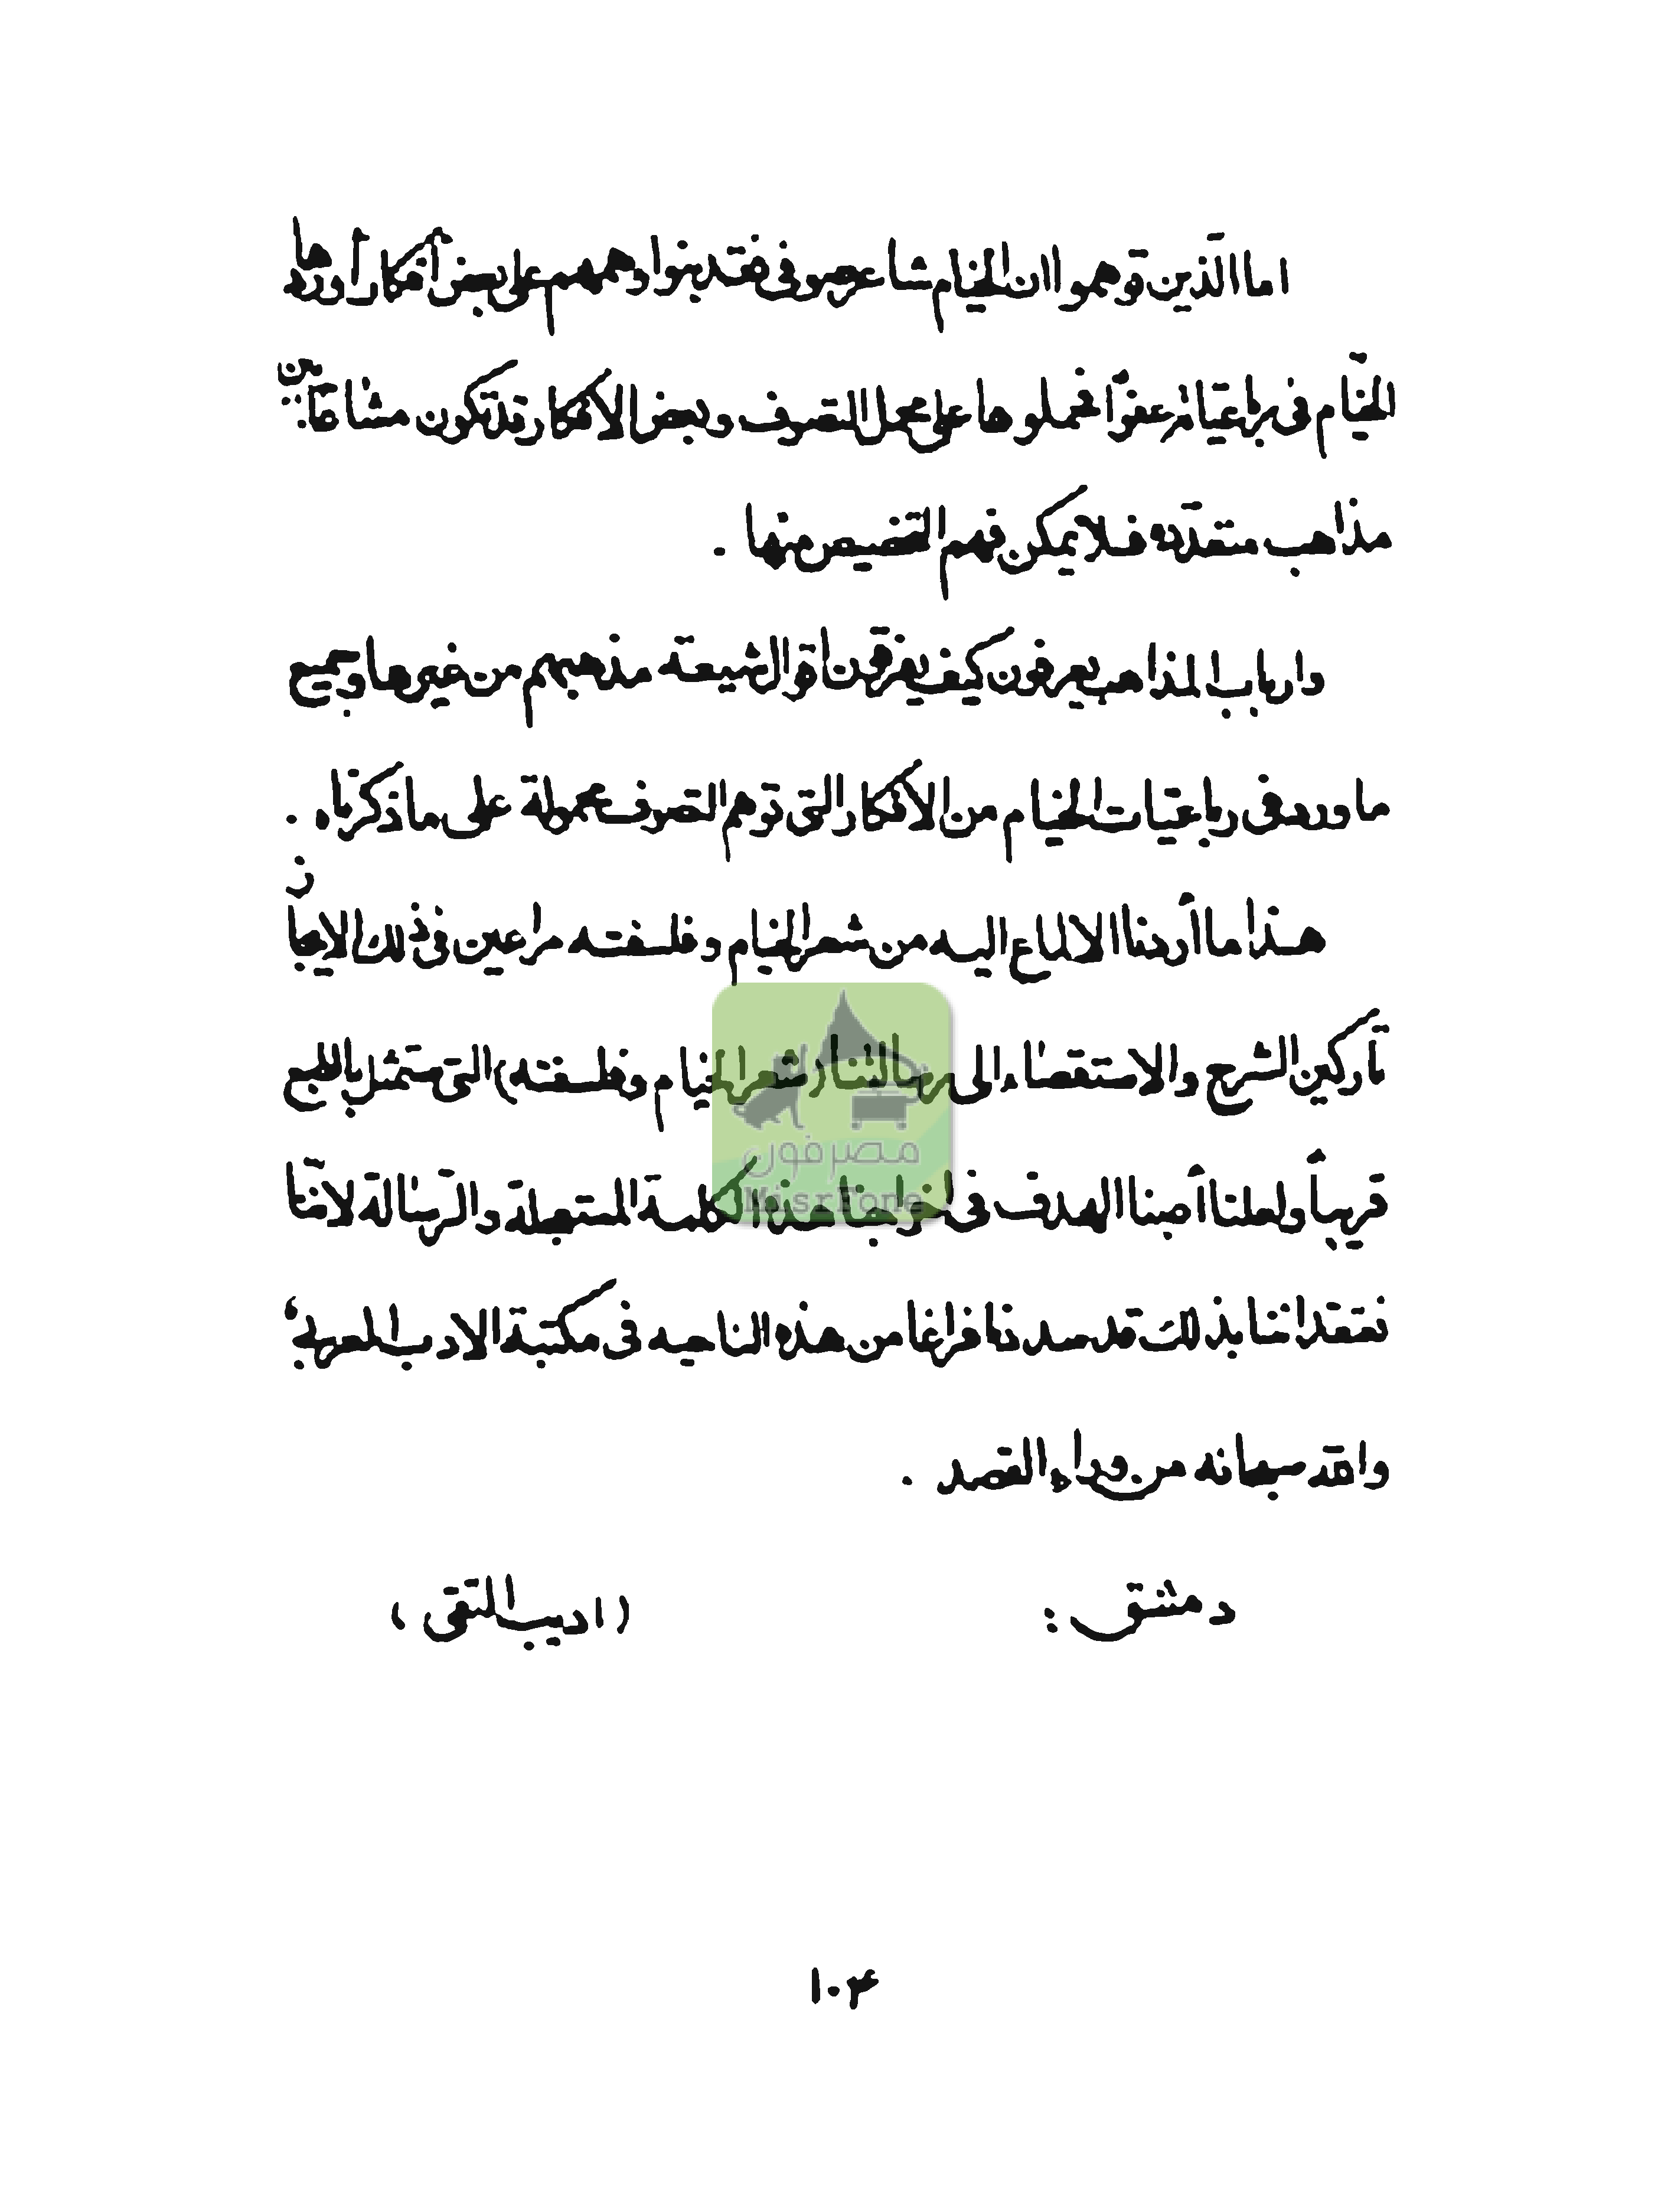 اما الّذين توهموا ان الخيام شاعر صوفى فقد بنوا وهمهم على بعض أفكار أوردها
الخيّام فى رباعيّاته عفواً فحملوها على محمل التصوف وبعض الافكار قد تكون مشاعًا بين
مذاهب متعدّده فلا يمكن فهم التخصيص منها .
وارباب المذاهب يعرفون كيف يفرقون اقوال شيعة مذهبهم من غيرها وجميع
ما ورد فى رباعيّات الخيام من الافكار التى توهم التصوف محمولة على ما ذكرناه .
هذا ما أردنا الالماع اليه من شعر الخيام وفلسفته مراعين فى ذلك الايجاز
تاركين الشرح والاستقصاء الى رسالتنا (شعر الخيام وفلسفته) التى ستمثل بالطبع
قريباً ولعلنا أصبنا الهدف فى اخراجنا هذه الكلمة المستعجلة والرّسالة لاننّا
نعتقد اننا بذلك قد سددنا فراغا من هذه الناحيه فى مكتبة الادب العربي،
والله سبحانه من وراء القصد .
دمشق :
( اديب التقى )
مصرفون
MisrFone
١٠٤